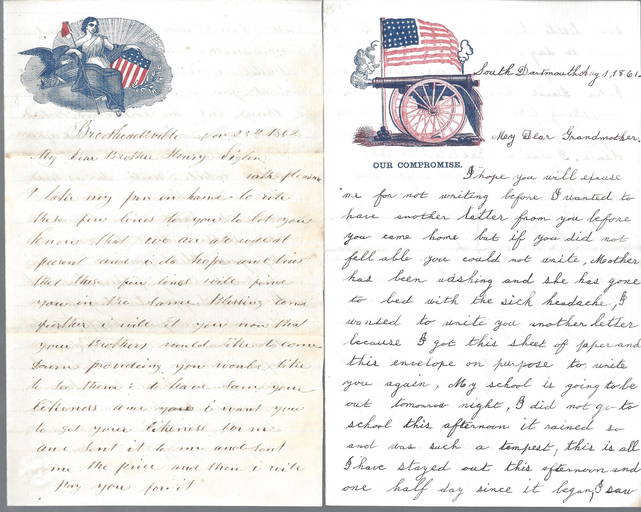 Brookheadsville Nov 23th 1862
My Dear Brother Henry Siglin
with pleasure
I take my pen in hand to rite
these few lines to you to let you
know that we are all well at
present and i do hope and trust
that these few lines will find
you in the same Blessing and
further i will let you now that
your Brothers would like to come
down providing you would like
to see them i have seen your
likeness and i want you
to get your likeness for me
and sent it to me and sent
me the price and then i will
pay you for it
South Dartmouth Aug 1, 1861.
My Dear Grandmother.
OUR COMPROMISE.
I hope you will excuse
me for not writing before I wanted to
have another letter from you before
you came home but if you did not
fell able you could not write, Mother
has been washing and she has gone
to bed with the sick headache, I
wanted to write you another letter
because I got this sheet of paper and
this envelope on purpose to write
you again, My school is going to be
out tomorrow night, I did not go to
school this afternoon it rained so
and was such a tempest, this is all
I have stayed out this afternoon and
one half day since it began, I saw